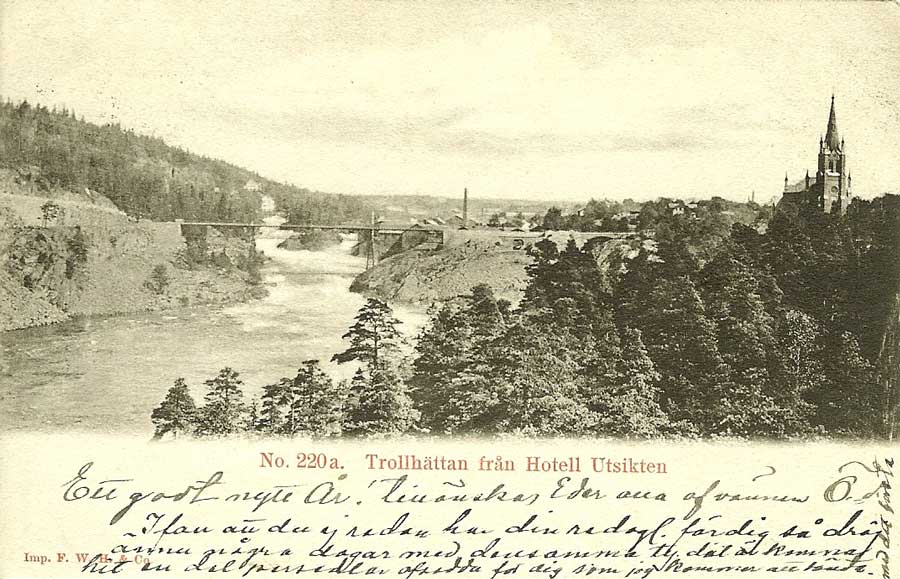 No. 220a. Trollhättan från Hotell Utsikten
Ett godt nytt År! tillönskas Eder af vännen Ö.
Ifall att du ej redan har din redog. färdig så dröj
ännu några dagar med densamma ty det är
hit en del persedlar för dig som jag kommer att
Imp. F. W. H. & Co
med det första